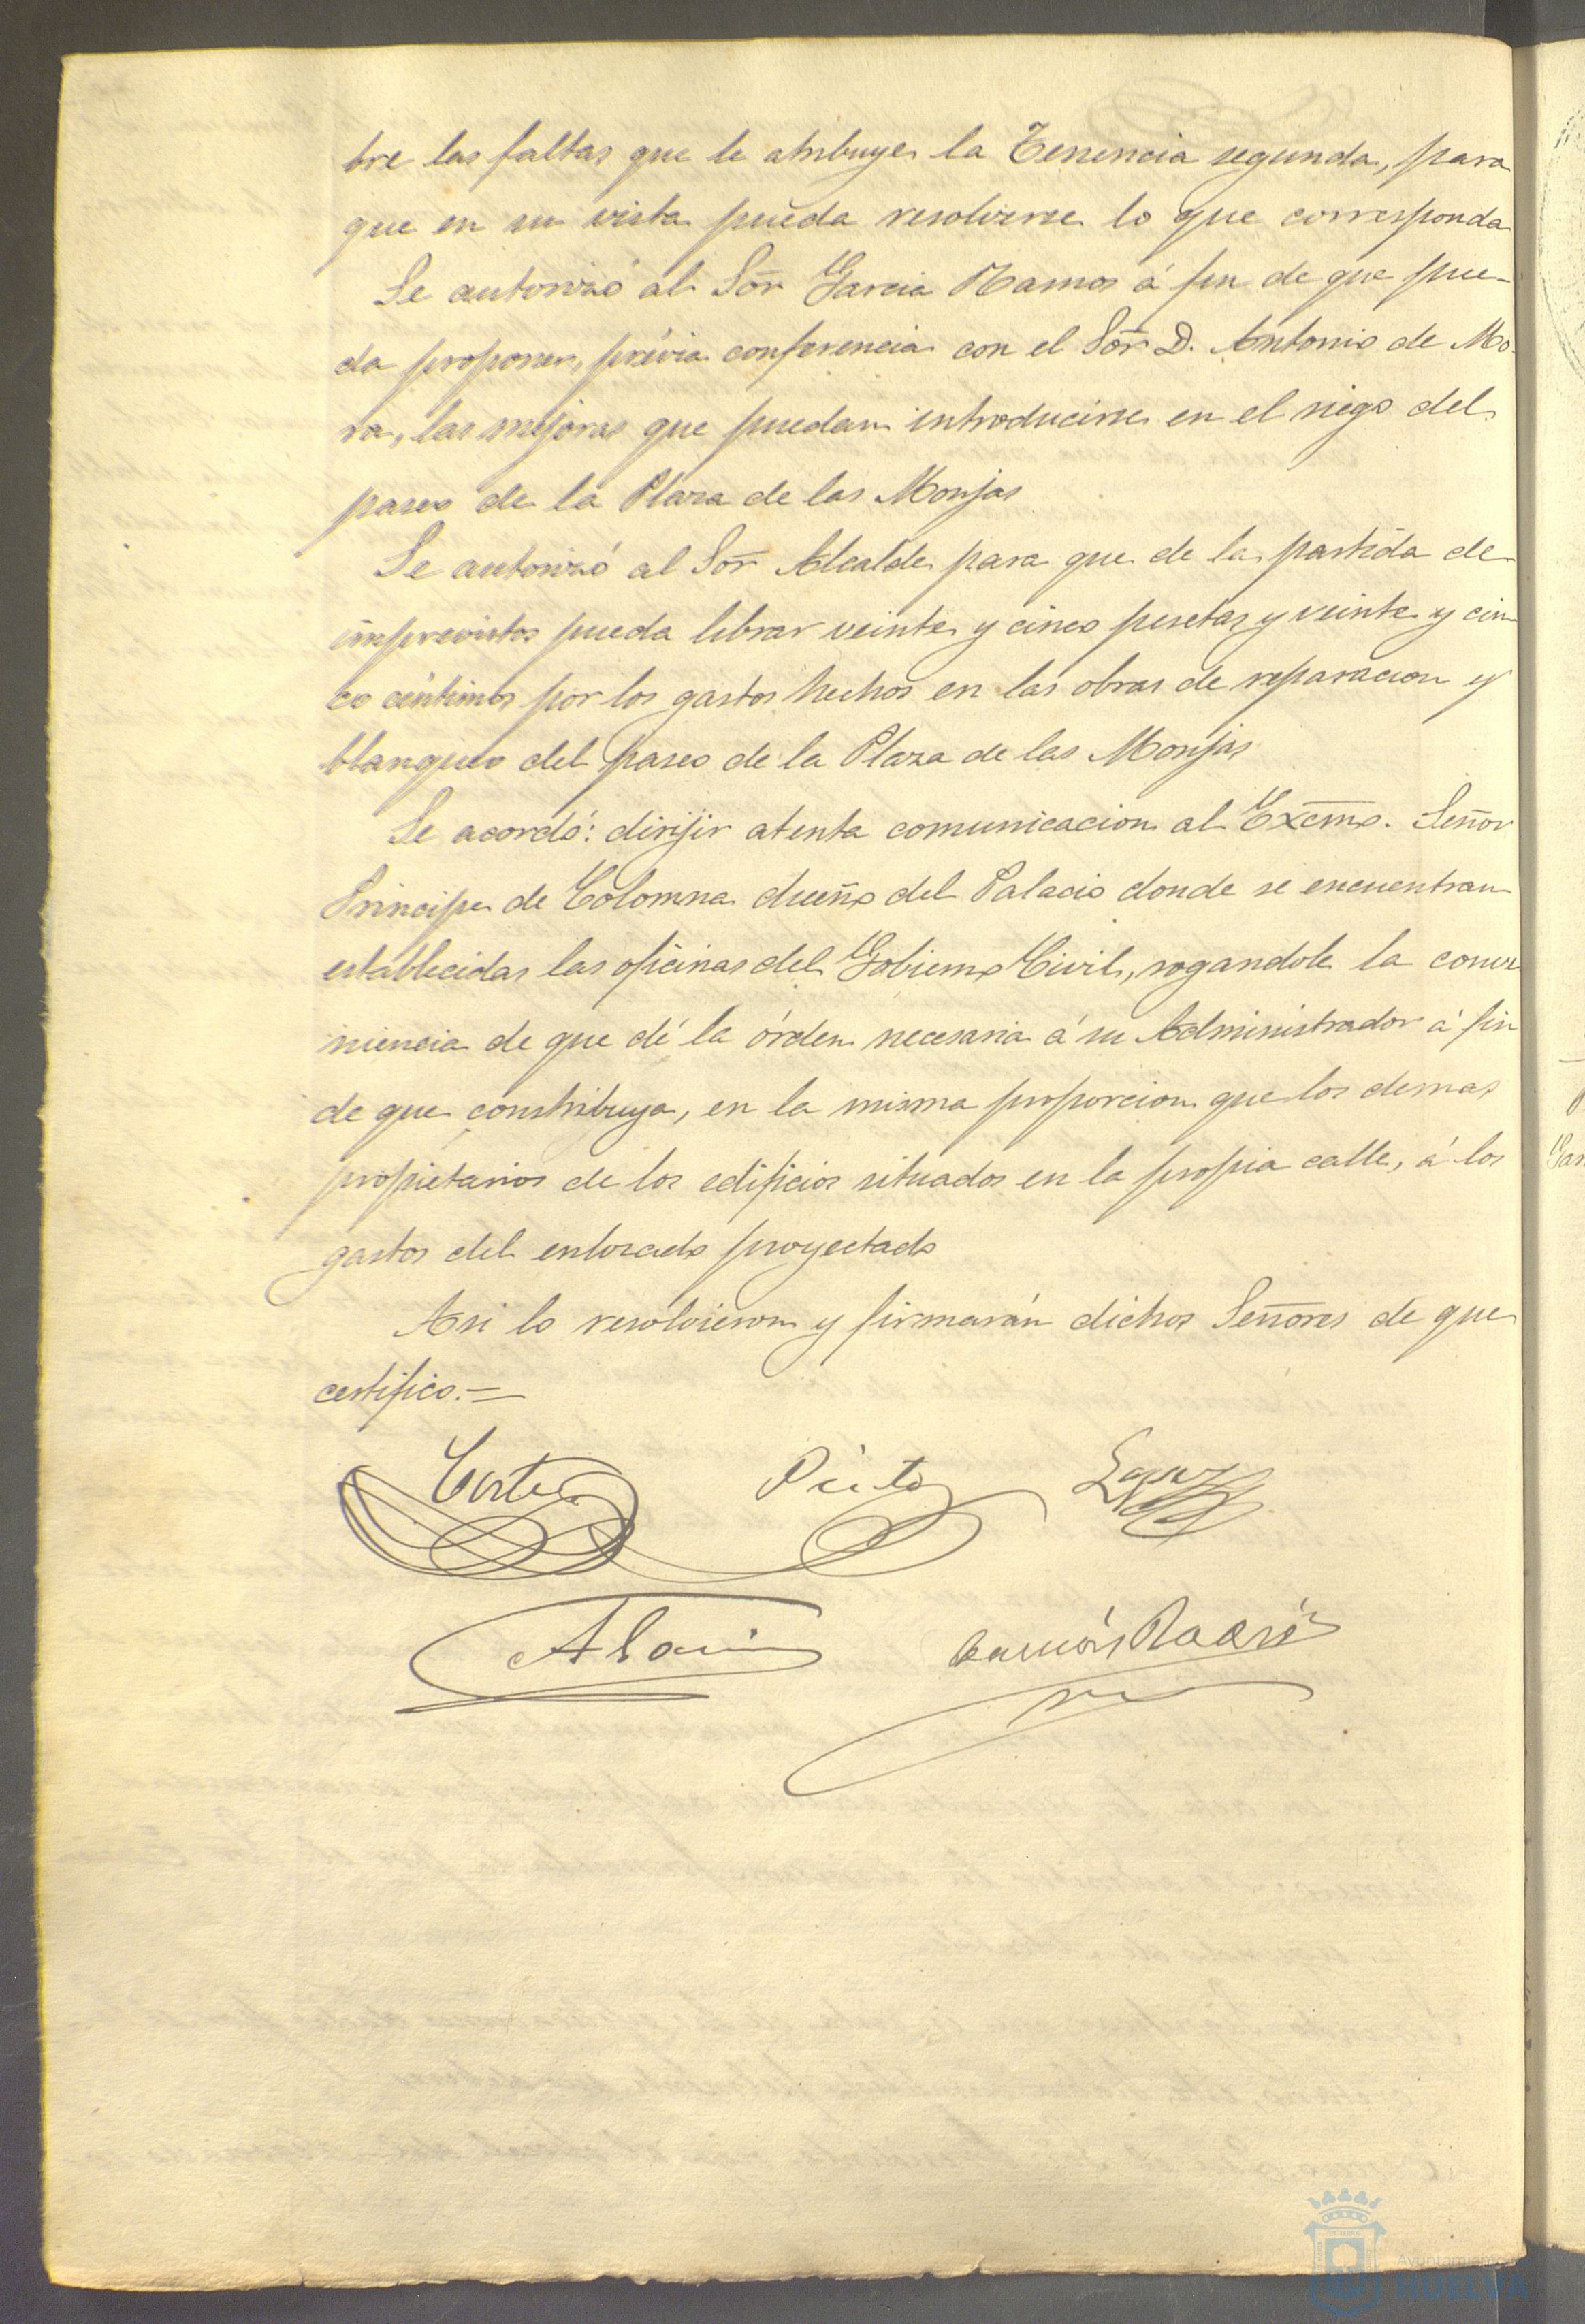 bre las faltas que le atribuye la Tenencia segunda, para
que en su vista pueda resolverse lo que corresponda
Se autorizó al Sõr Garcia Ramos á fin de que pue-
da proponer, prévia conferencia con el Sõr D. Antonio de Mo-
ra, las mejoras que puedan introducirse en el riego del
paseo de la Plaza de las Monjas
Se autorizó al Sõr Alcalde para que de la partida de
imprevistos pueda librar veinte y cinco pesetas y veinte y cin
co céntimos por los gastos hechos en las obras de reparacion y
blanqueo del paseo de la Plaza de las Monjas
Se acordó: dirijir atenta comunicacion al Excmo. Señor
Principe de Colomna dueño del Palacio donde se encuentran
establecidas las oficinas del Gobierno Civil, rogandole la conve
niencia de que dé la órden necesaria á su Administrador á fin
de que constribuya, en la misma proporcion que los demas
propietarios de los edificios situados en la propia calle, á los
gastos del enlosado proyectado
Asi lo resolvieron y firmarán dichos Señores de que
certifico.=
Pinto
Gar
Ayuntamiento de
HUELVA